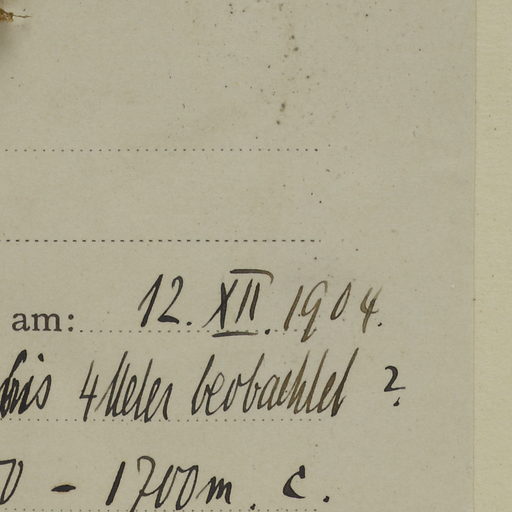 am: 12. XII. 1904.
bis 4 Meter beobachtet ?
0 - 1700 m. c.